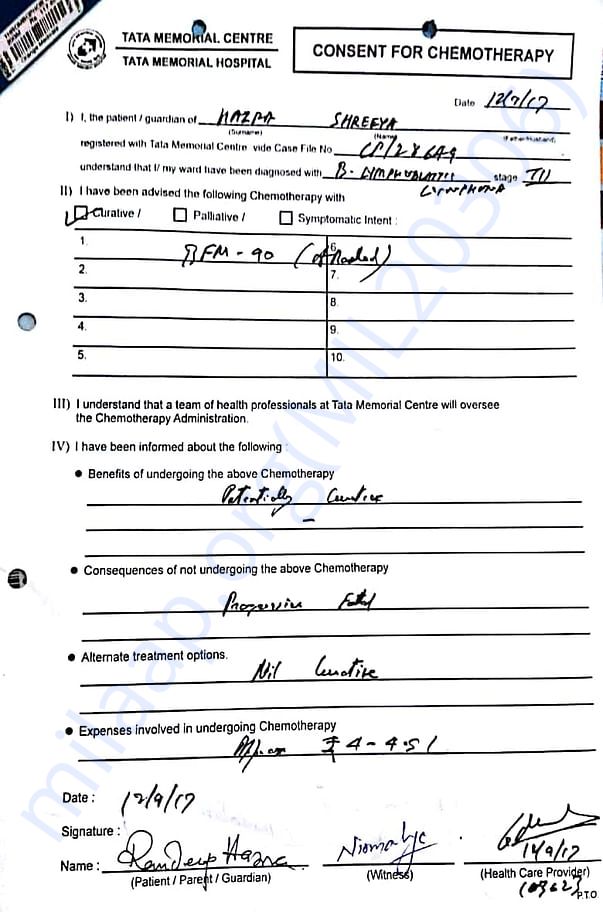 TATA MEMORIAL CENTRE
TATA MEMORIAL HOSPITAL
CONSENT FOR CHEMOTHERAPY
Date 12/9/17
I) I, the patient / guardian of HAZRA SHREEYA
(Surname) (Name) (Father/Husband)
registered with Tata Memorial Centre vide Case File No.
understand that I/ my ward have been diagnosed with B. LYMPHOBLASTIC LYMPHOMA stage III
II) I have been advised the following Chemotherapy with
Curative / Palliative / Symptomatic Intent :
1. BFM-90 6.
2. 7.
3. 8.
4. 9.
5. 10.
III) I understand that a team of health professionals at Tata Memorial Centre will oversee
the Chemotherapy Administration.
IV) I have been informed about the following :
● Benefits of undergoing the above Chemotherapy
Potentially Curative
● Consequences of not undergoing the above Chemotherapy
Progressive Fatal
● Alternate treatment options.
Nil Curative
● Expenses involved in undergoing Chemotherapy
₹ 4-4.5 l
Date : 12/9/17
Signature :
Name : Randeep Hazra
(Patient / Parent / Guardian) (Witness) (Health Care Provider)
P.T.O
milaap.org(MIL203306)